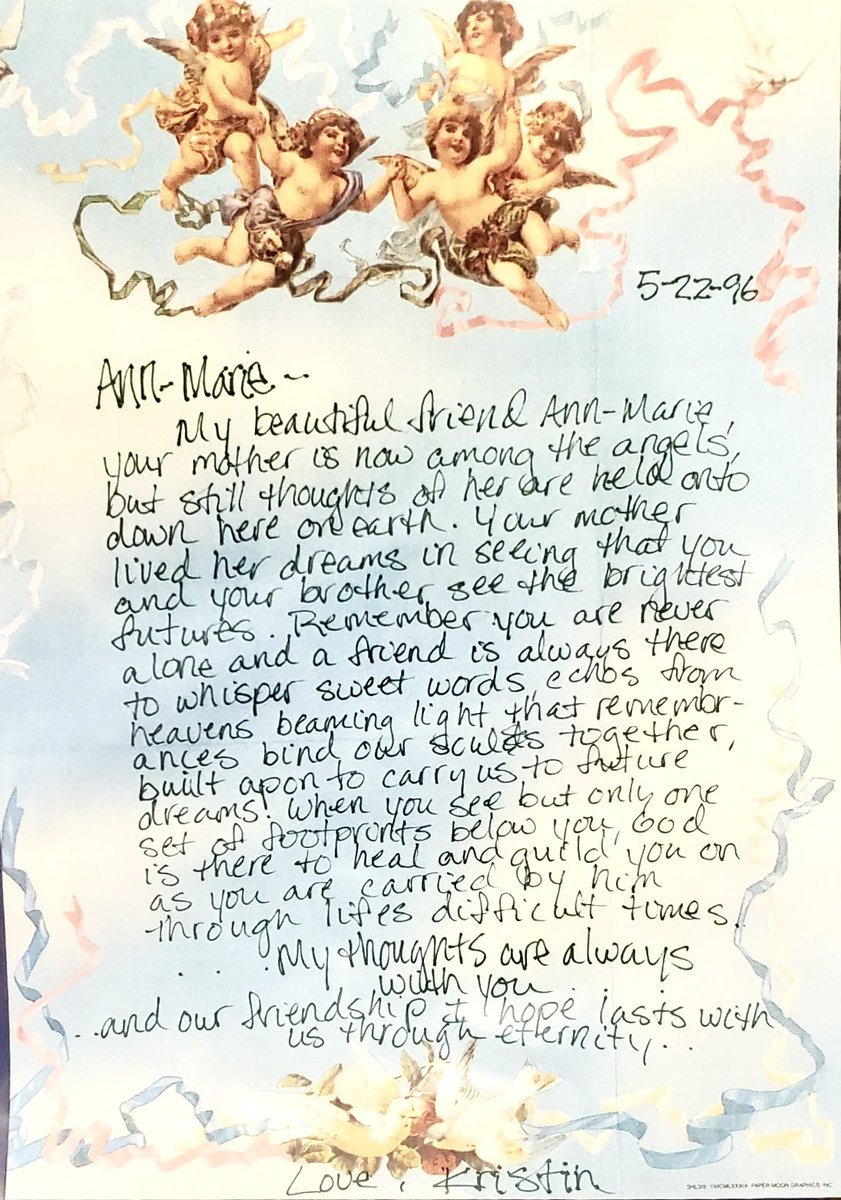 5-22-96
Ann-Marie--
My beautiful friend Ann-Marie,
your mother is now among the angels,
but still thoughts of her are held onto
down here on earth. Your mother
lived her dreams in seeing that you
and your brother see the brightest
futures. Remember you are never
alone and a friend is always there
to whisper sweet words, echos from
heavens beaming light that remembr-
ances bind our souls together,
built apon to carry us to future
dreams. When you see but only one
set of footprints below you, God
is there to heal and guild you on
as you are carried by him
through lifes difficult times.
. . . My thoughts are always
with you . . .
...and our friendship I hope lasts with
us through eternity...
Love, Kristin
SHL318 ©MCMLXXXIX PAPER MOON GRAPHICS, INC.